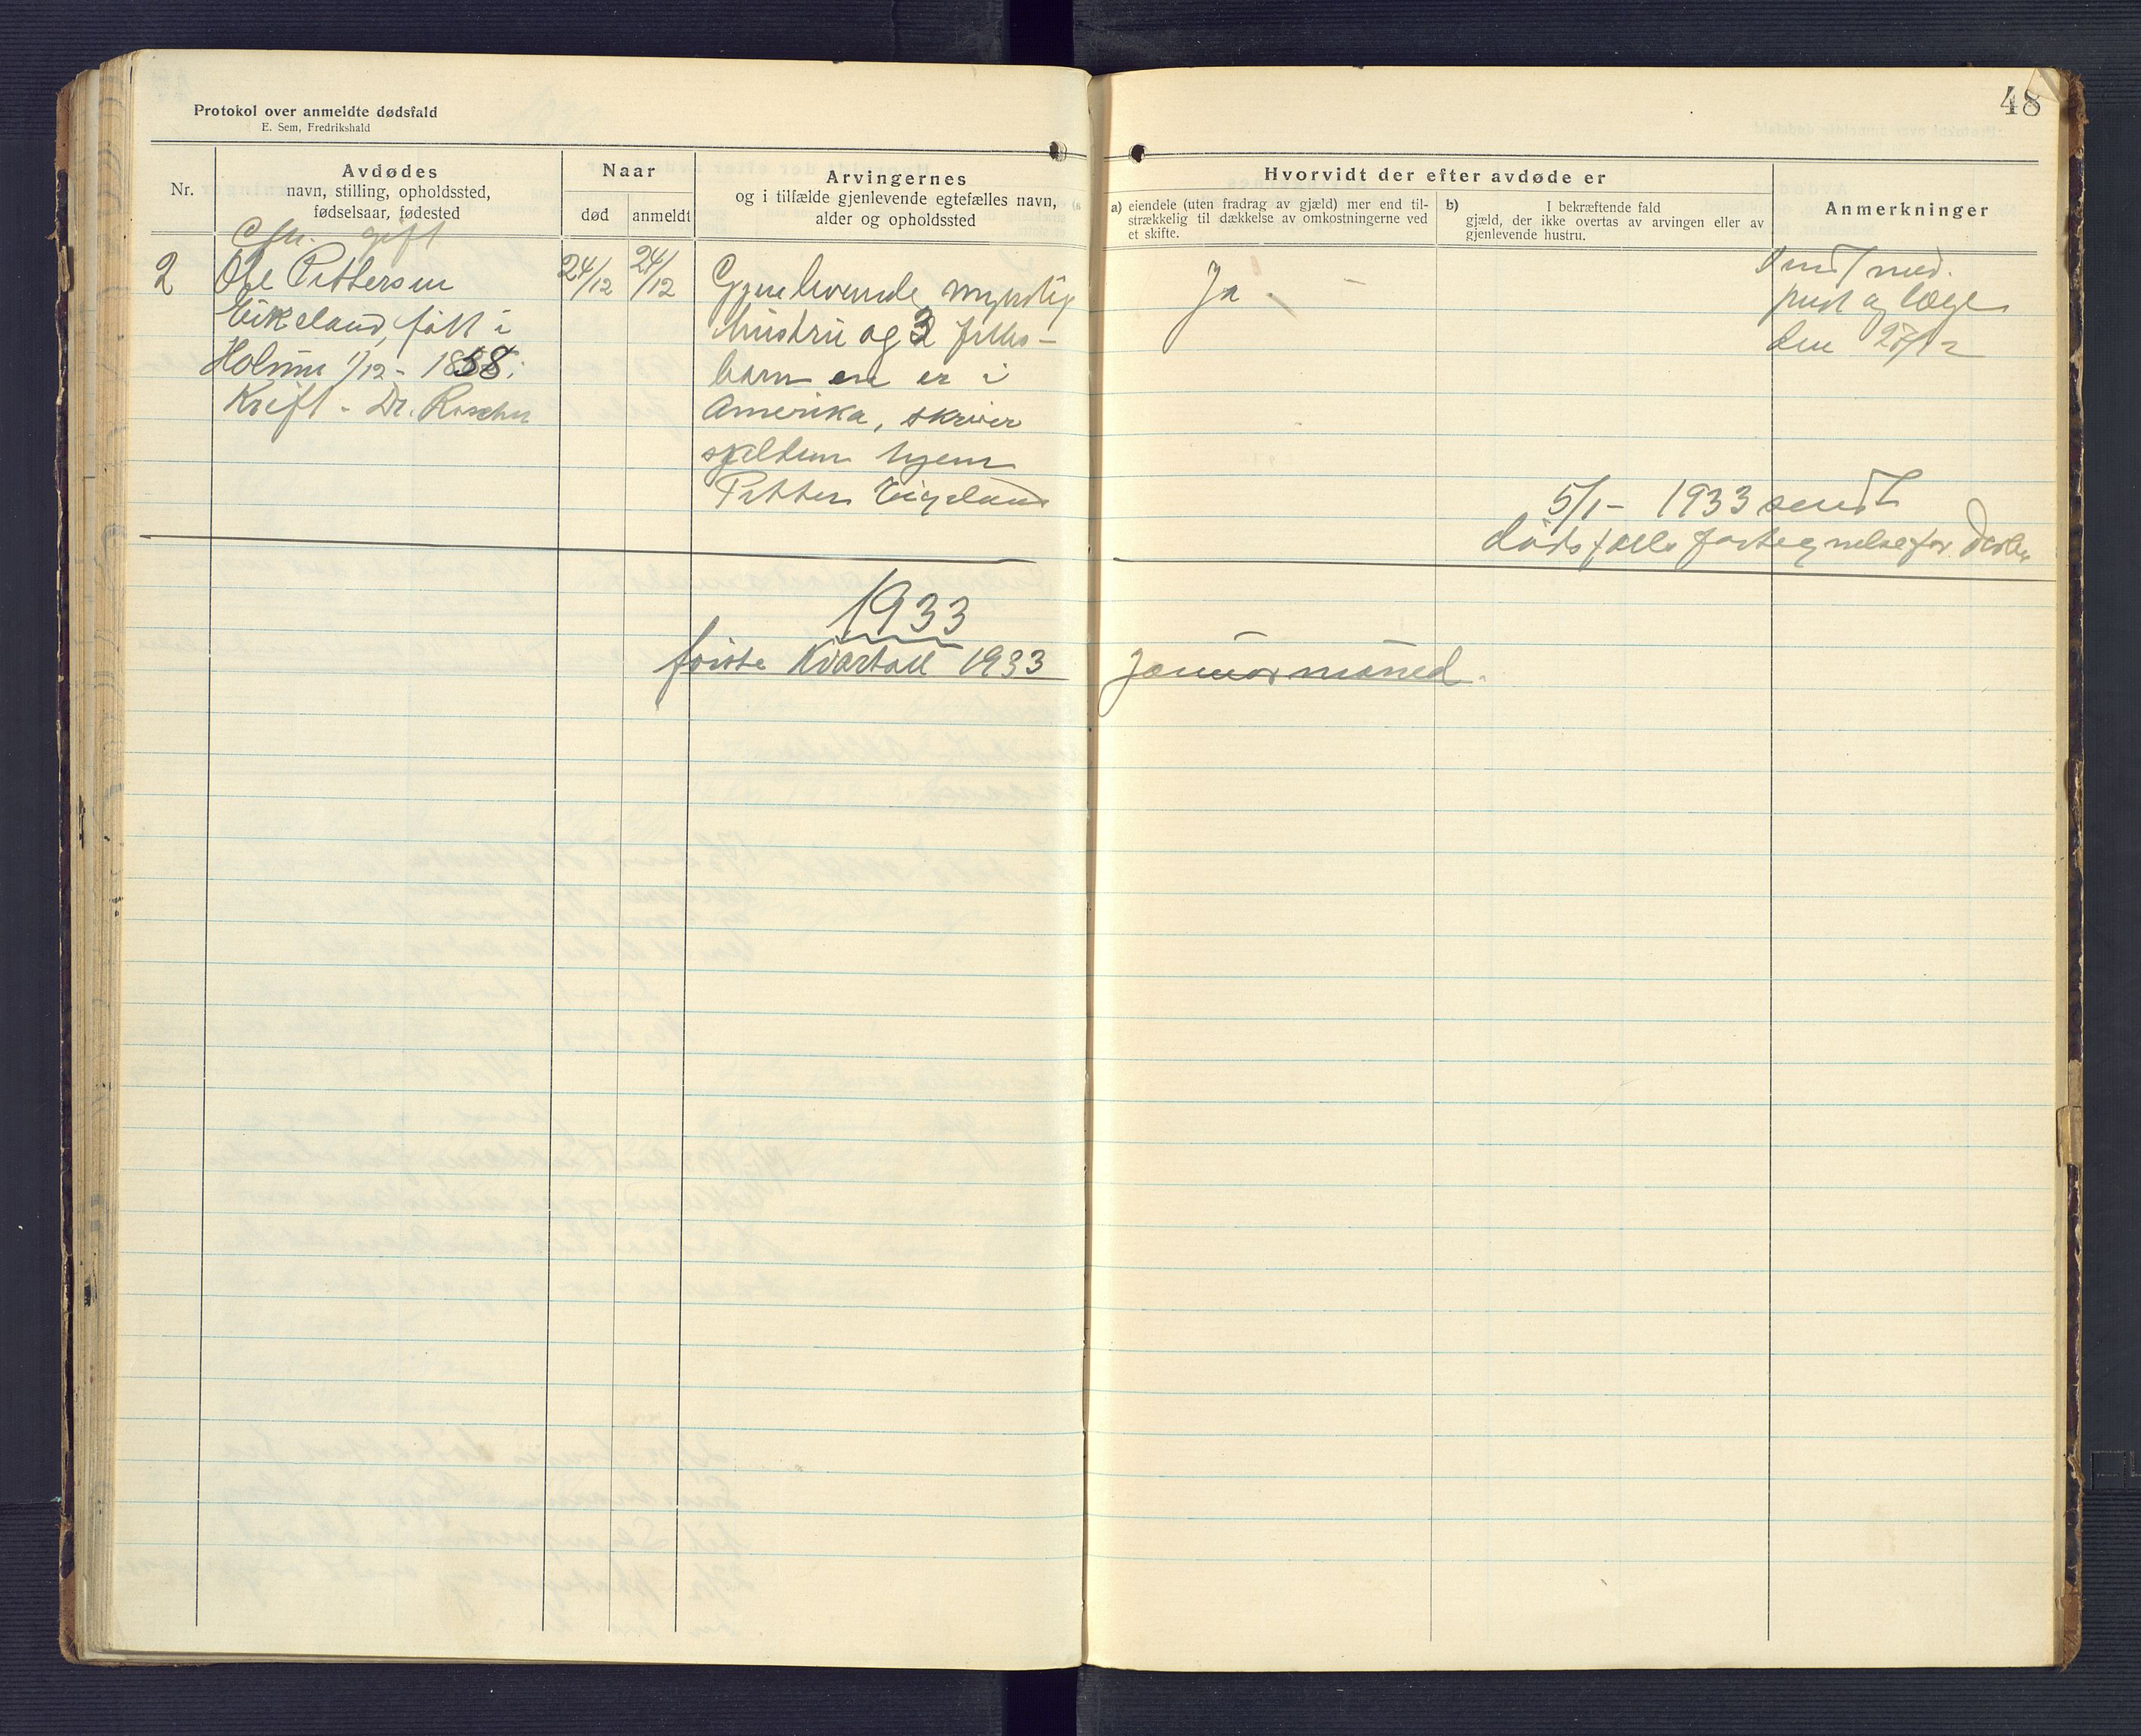 48
Protokol over anmeldte dødsfald
E. Sem, Fredrikshald
Nr.
Avdødes
navn, stilling, opholdssted,
fødselsaar, fødested
Naar
død
anmeldt
Arvingernes
og i tilfælde gjenlevende egtefælles navn,
alder og opholdssted
Hvorvidt der efter avdøde er
a) eiendele (uten fradrag av gjæld) mer end til-
strækkelig til dækkelse av omkostningerne ved
et skifte.
b) I bekræftende fald
gjæld, der ikke overtas av arvingen eller av
gjenlevende hustru.
Anmerkninger
gift
2
Ole Pettersen
Eikeland, født i
Holum 1/12 - 1858;
Kreft - Dr.
24/12
24/12
Gjenlevende myndig
hustru og 3 felles-
barn en er i
Amerika, skriver
sjeldnen hjem
Petter Eigeland
Ja
Sendt med.
prest og læge
den 27/12
5/1 - 1933 sendt
dødsfalls fortegnelse for Desbr
1933
første Kvartall 1933
Januar måned.